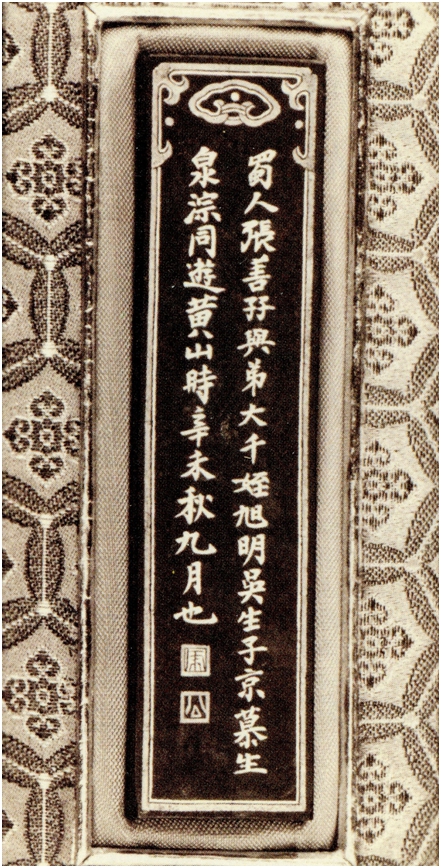 蜀人張善孖與弟大千姪旭明吳生子京慕生
泉淙同遊黃山時辛未秋九月也
公